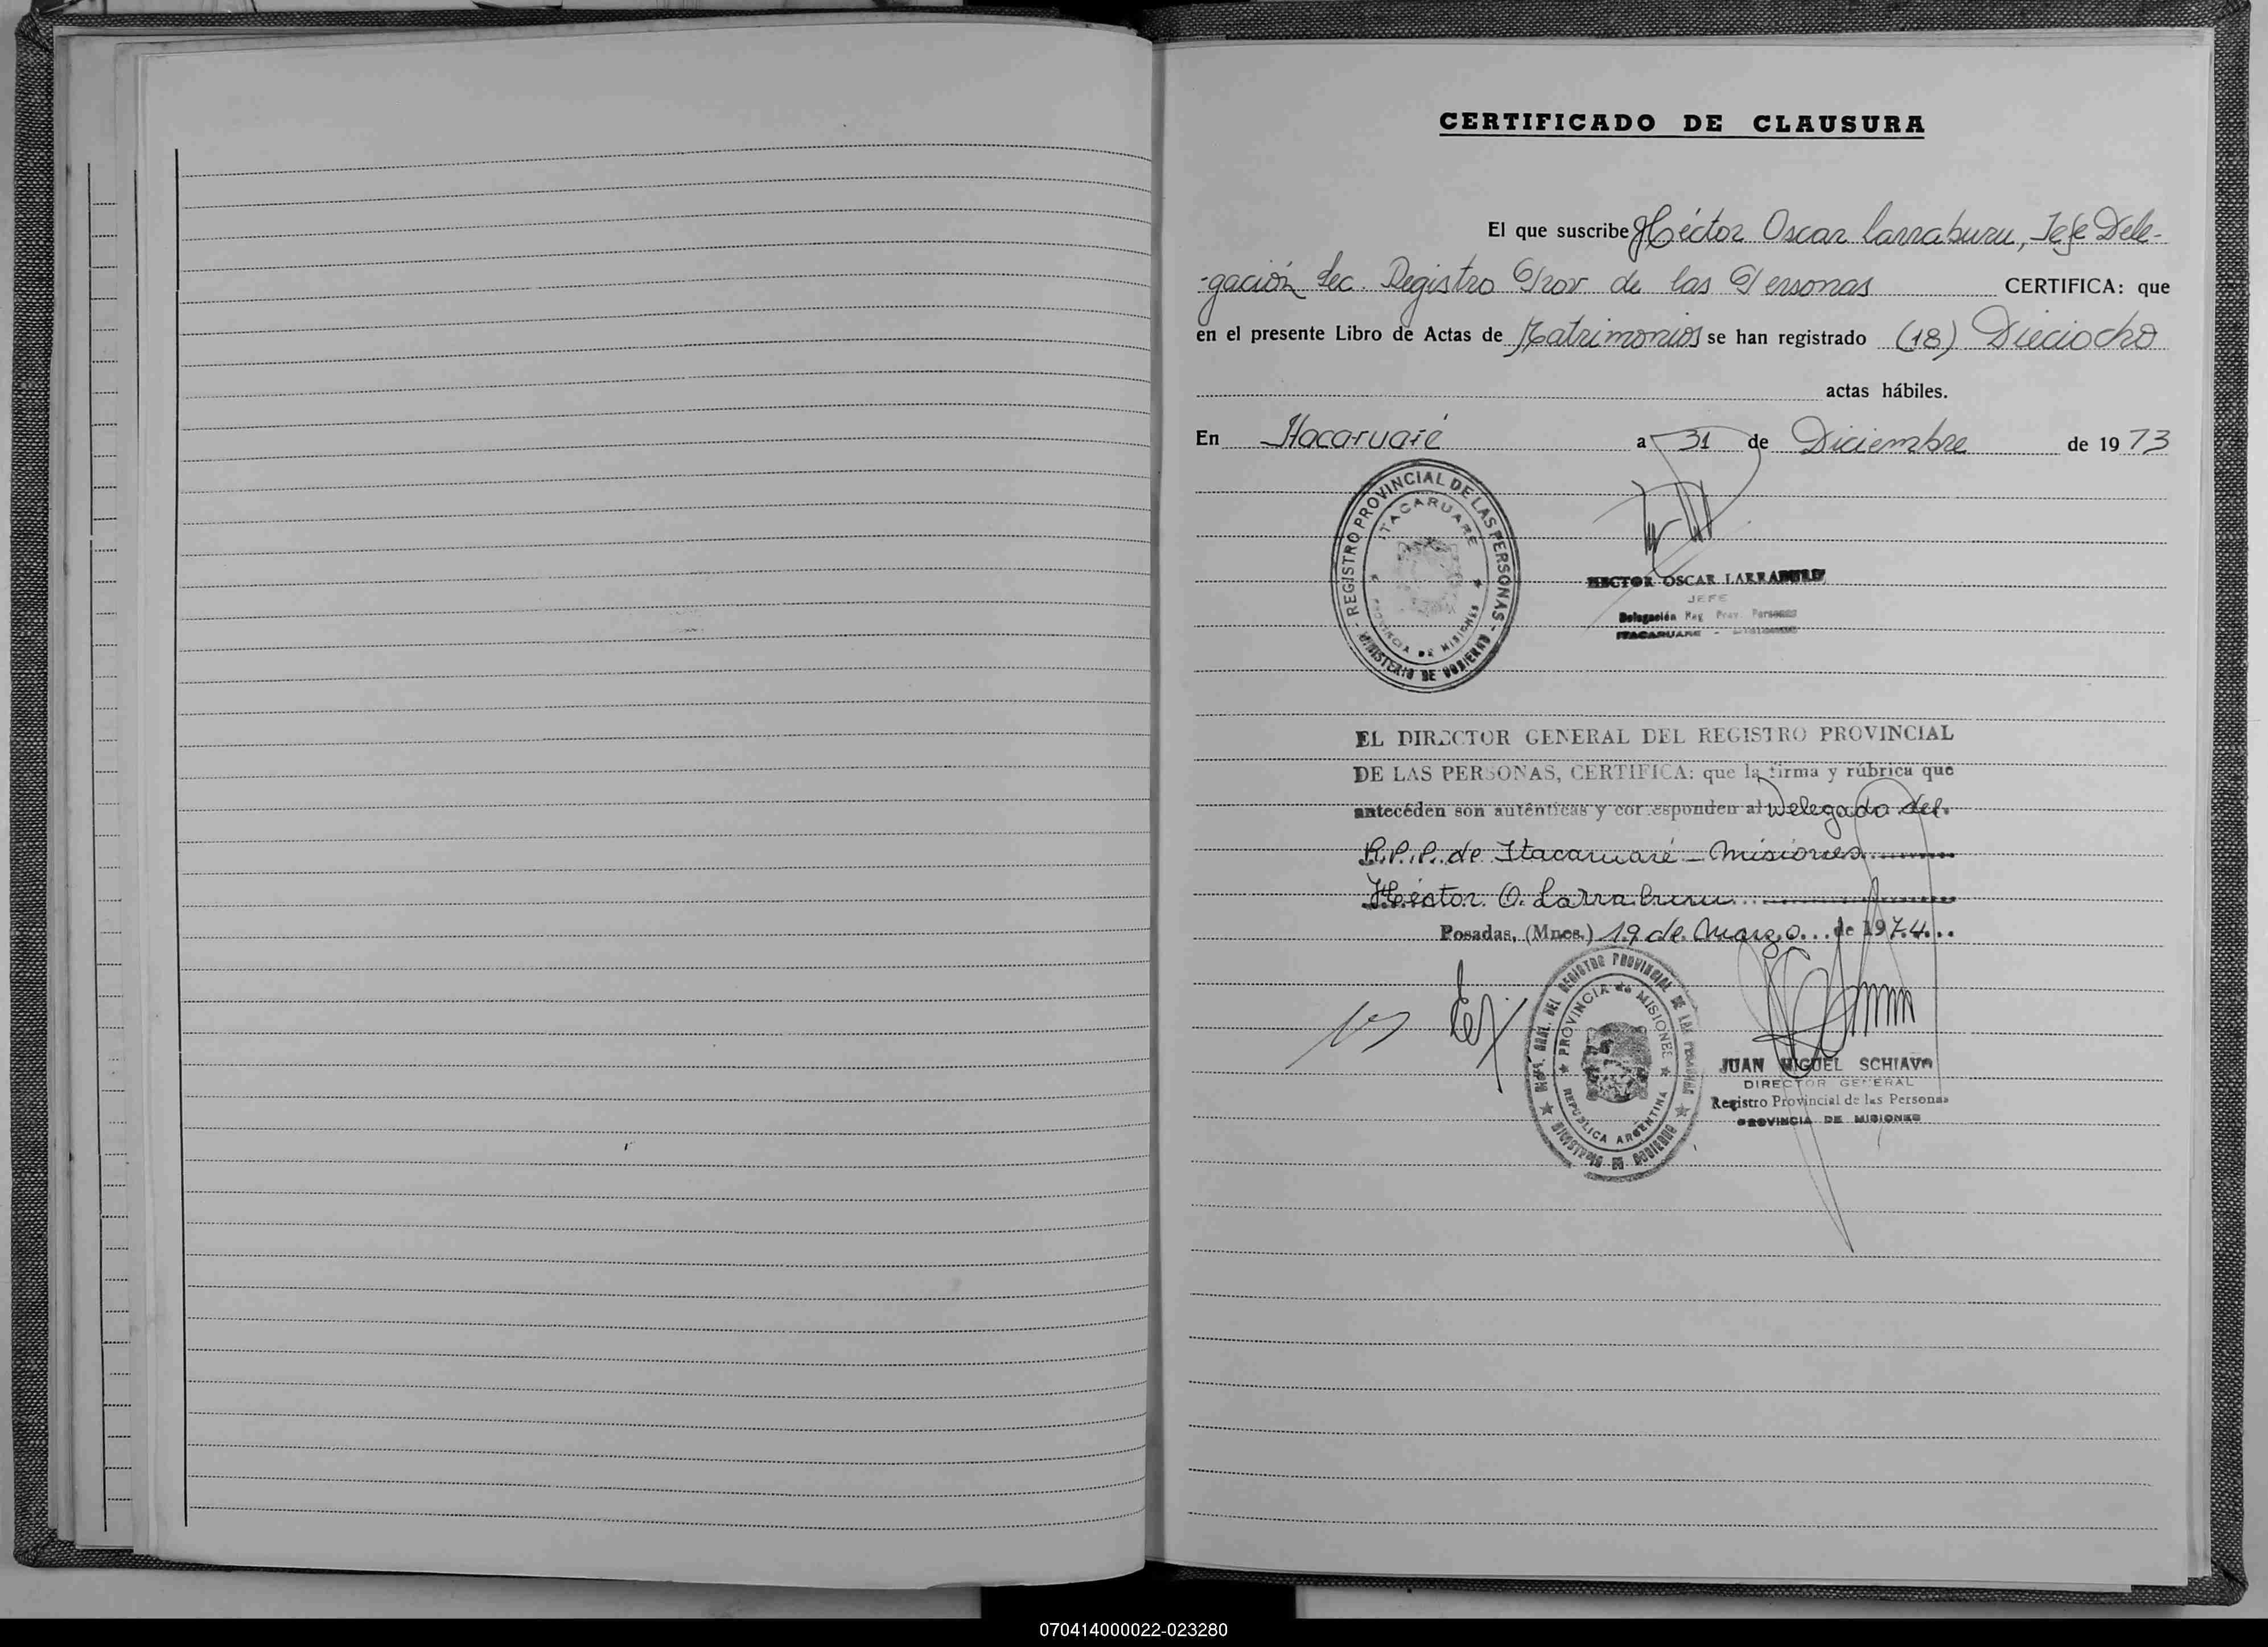 CERTIFICADO DE CLAUSURA
El que suscribe Héctor Oscar Larraburu, Jefe Dele-
-gación Sec. Registro Prov. de las Personas CERTIFICA: que
en el presente Libro de Actas de Matrimonios se han registrado (18) Dieciocho
actas hábiles.
En Itacaruaré a 31 de Diciembre de 1973
REGISTRO PROVINCIAL DE LAS PERSONAS - MINISTERIO DE GOBIERNO
ITACARUARE
PROVINCIA DE MISIONES
HECTOR OSCAR LARRABURU
JEFE
Delegación Reg Prov Personas
ITACARUARE -
EL DIRECTOR GENERAL DEL REGISTRO PROVINCIAL
DE LAS PERSONAS, CERTIFICA: que la firma y rúbrica que
anteceden son auténticas y corresponden al Delegado del
R.P.P. de Itacaruaré - Misiones
Héctor O. Larraburu
Posadas, (Mnes.) 19 de Marzo de 1974
GRAL. DEL REGISTRO PROVINCIAL DE LAS PERSONAS
MINISTERIO DE GOBIERNO
PROVINCIA de MISIONES
REPUBLICA ARGENTINA
JUAN MIGUEL SCHIAVO
DIRECTOR GENERAL
Registro Provincial de las Personas
PROVINCIA DE MISIONES
070414000022-023280